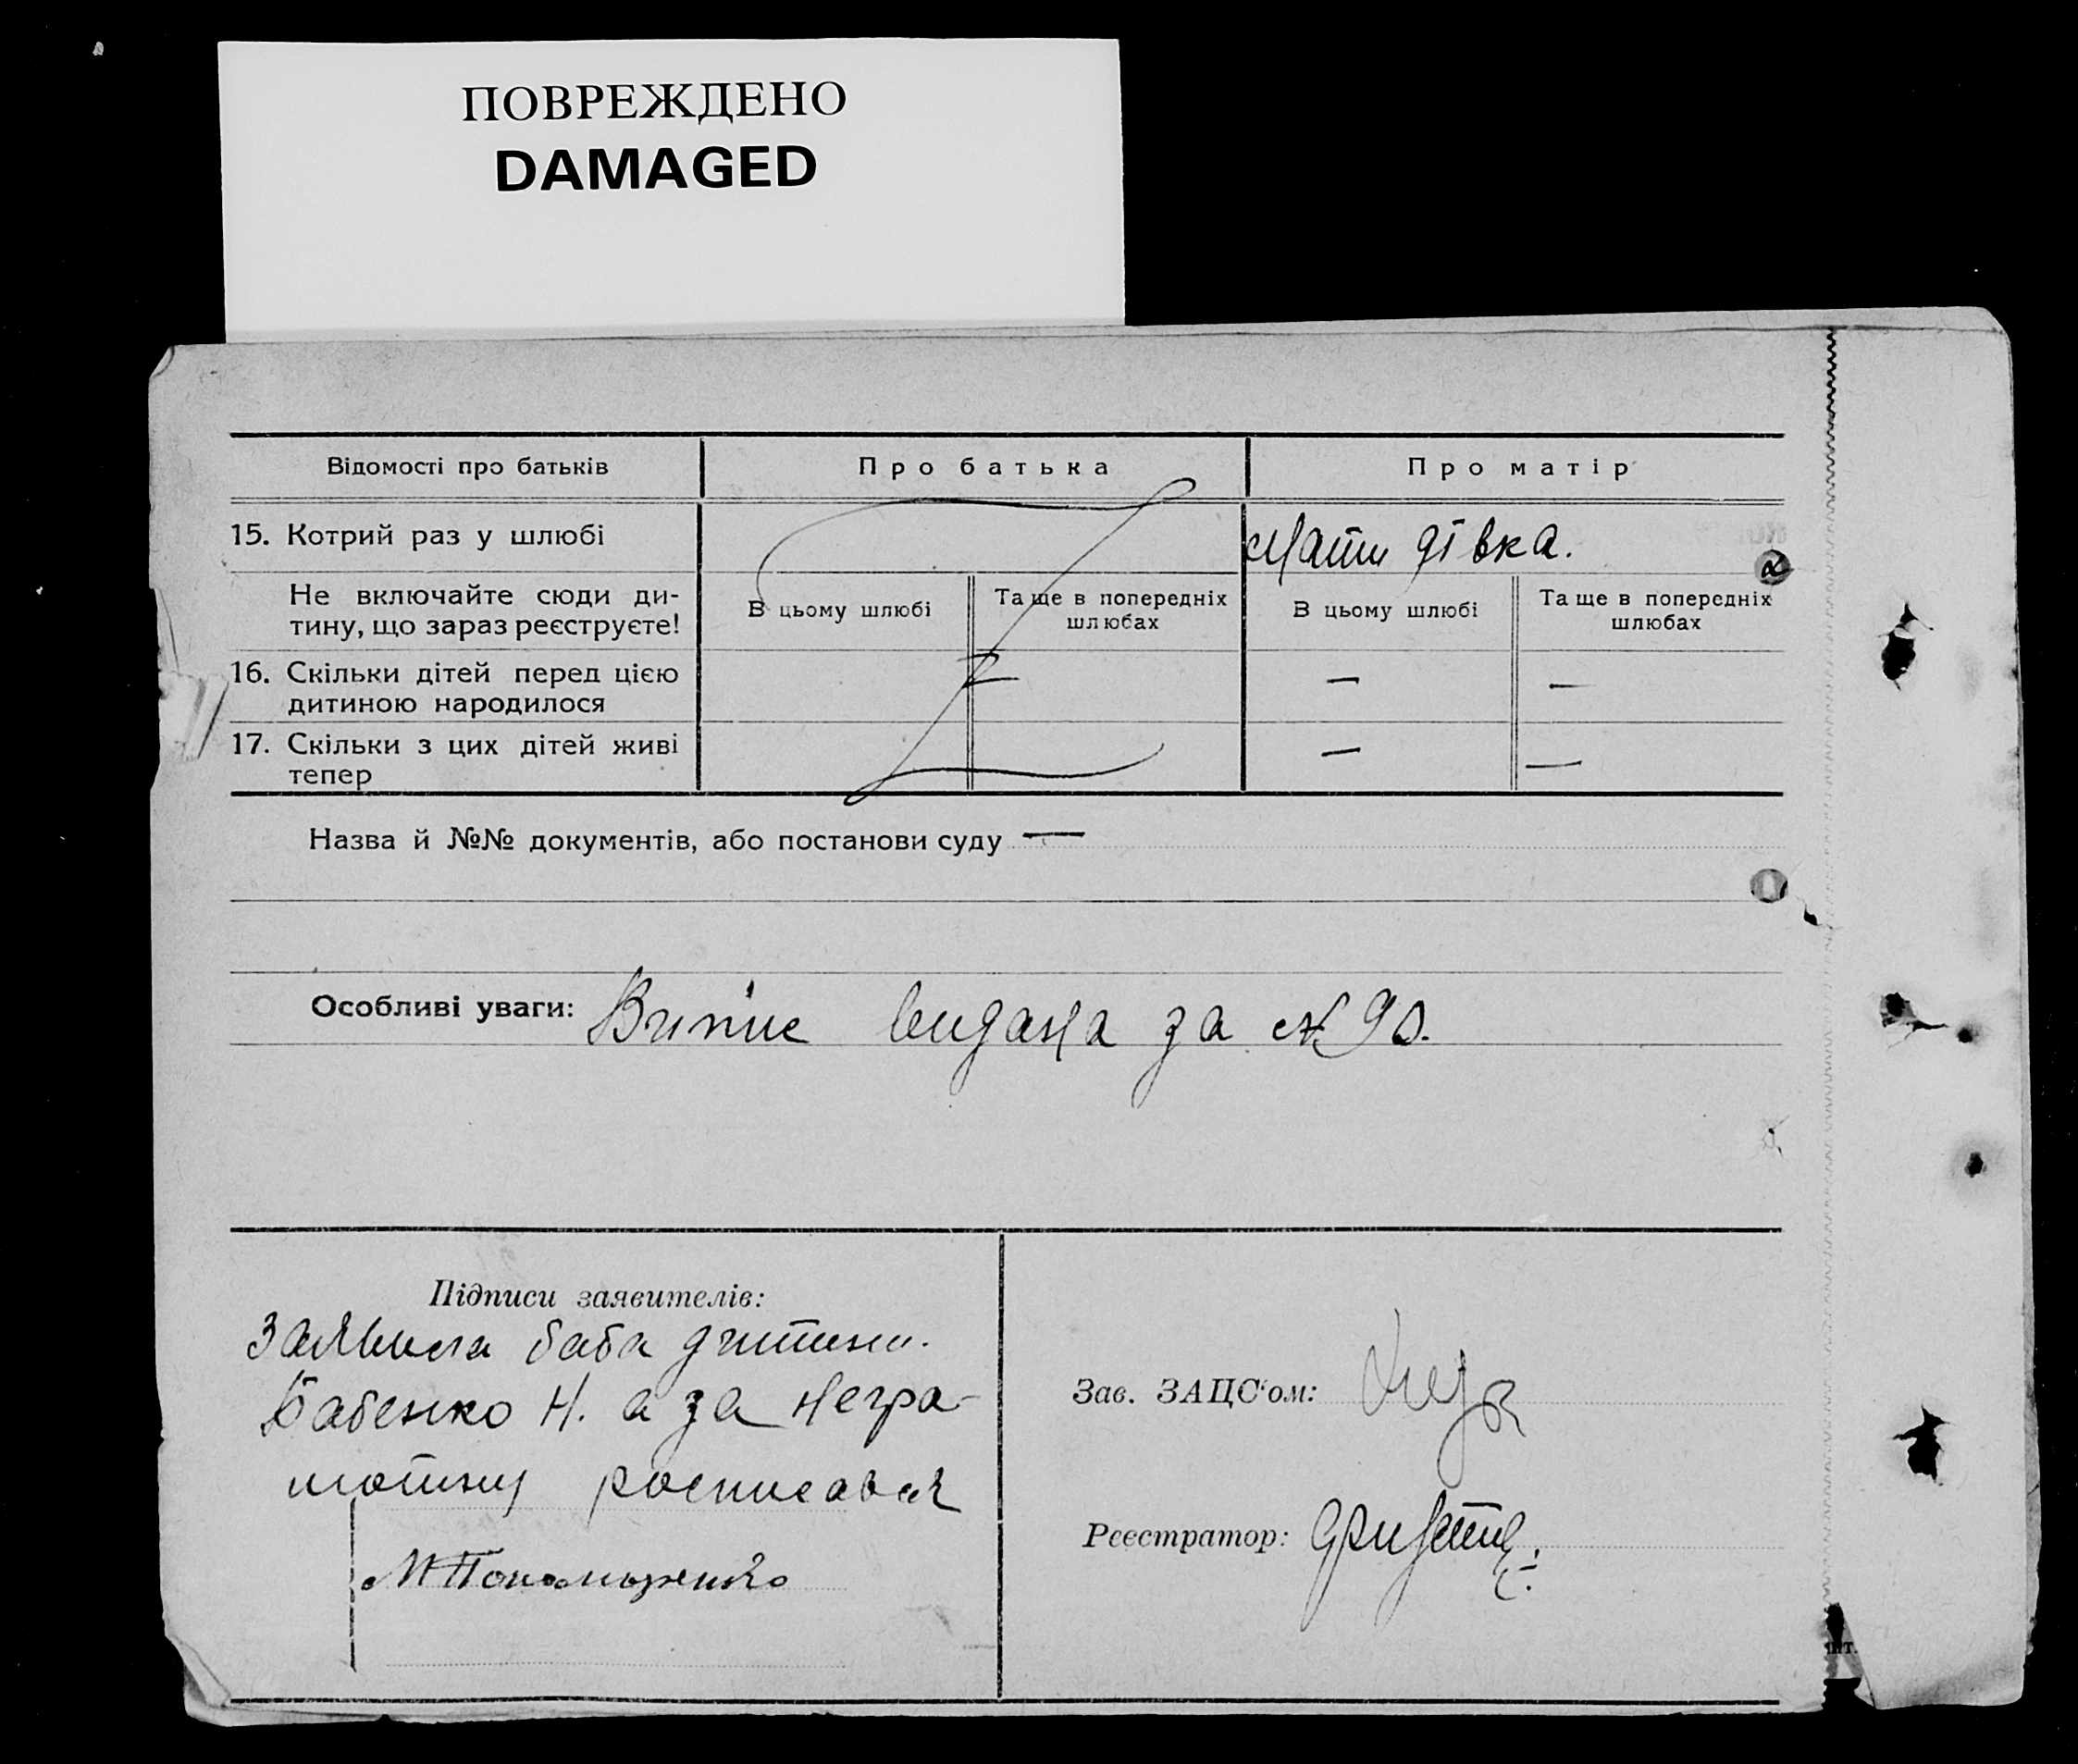 ПОВРЕЖДЕНО
DAMAGED
Відомості про батьків
Про батька
Про матір
15. Котрий раз у шлюбі
Мати дівка.
Не включайте сюди ди-
тину, що зараз реєструєте!
В цьому шлюбі
Та ще в попередніх
шлюбах
В цьому шлюбі
Та ще в попередніх
шлюбах
16. Скільки дітей перед цією
дитиною народилося
— —
17. Скільки з цих дітей живі
тепер
— —
Назва й №№ документів, або постанови суду —
Особливі уваги: Випис видана за № 90.
Підписи заявителів:
Заявила баба дитини.
Бабенко Н. а за негра-
мотну росписався
М Пономаренко
Зав. ЗАЦС'ом:
Реєстратор: